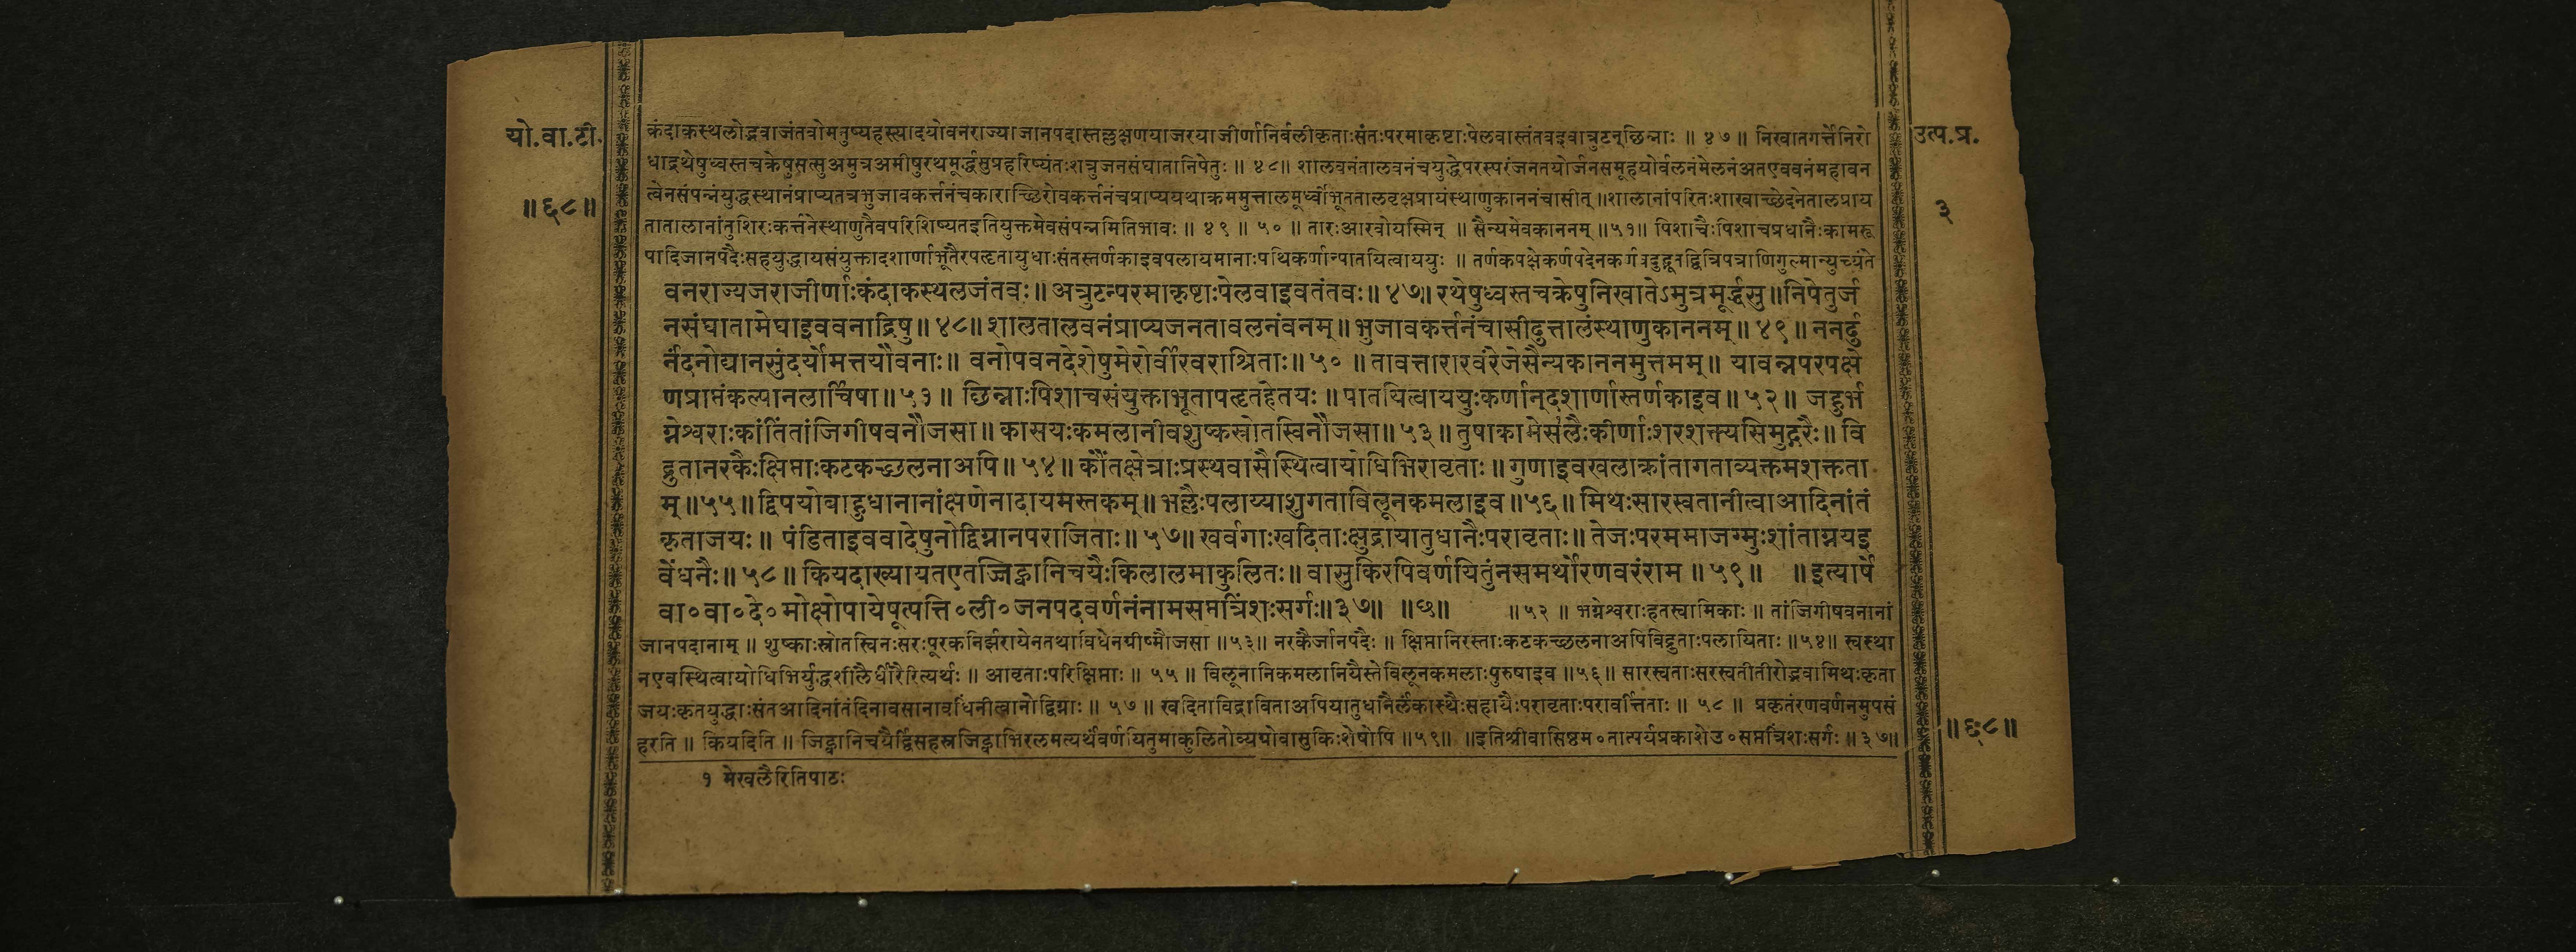 यो.वा.टी.
॥६८॥
उत्प.प्र.
३
कंदाकस्थलोद्भवाजंतवोमनुष्यहस्त्यादयोवनराज्याजानपदास्तल्लक्षणयाजरयाजीर्णानिर्बलीकृताःसंतःपरमाकृष्टाःपेलवास्तंतवइवात्रुटन्छिन्नाः ॥ ४७ ॥ निखातगर्त्तेनिरो
धाद्रथेषुध्वस्तचक्रेषुसत्सुअमुत्रअमीषुरथमूर्द्धसुप्रहरिष्यंतःशत्रुजनसंघातानिपेतुः ॥ ४८॥ शालवनंतालवनंचयुद्धेपरस्परंजनतयोर्जनसमूहयोर्वलनंमेलनंअतएववनंमहावन
त्वेनसंपन्नंयुद्धस्थानंप्राप्यतत्रभुजावकर्त्तनंचकाराच्छिरोवकर्त्तनंचप्राप्ययथाक्रममुत्तालमूर्ध्वीभूततालवृक्षप्रायंस्थाणुकाननंचासीत् ॥शालानांपरितःशाखाच्छेदनेतालप्राय
तातालानांतुशिरःकर्त्तनेस्थाणुतैवपरिशिष्यतइतियुक्तमेवसंपन्नमितिभावः ॥ ४९ ॥ ५० ॥ तारःआरवोयस्मिन् ॥ सैन्यमेवकाननम् ॥५१॥ पिशाचैःपिशाचप्रधानैःकामरू
पादिजानपदैःसहयुद्धायसंयुक्तादशार्णाभूतैरपत्दृतायुधाःसंतस्तर्णकाइवपलायमानाःपथिकर्णान्पातयित्वाययुः ॥ तर्णकपक्षेकर्णपदेनकर्णवदुद्भूतद्वित्रिपत्राणिगुल्मान्युच्यंते
वनराज्यजराजीर्णाःकंदाकस्थलजंतवः॥ अत्रुटन्परमाकृष्टाःपेलवाइवतंतवः॥ ४७॥ रथेषुध्वस्तचक्रेषुनिखातेऽमुत्रमूर्द्धसु॥निपेतुर्ज
नसंघातामेघाइववनाद्रिषु॥ ४८॥ शालतालवनंप्राप्यजनतावलनंवनम्॥ भुजावकर्त्तनंचासीदुत्तालंस्थाणुकाननम्॥ ४९॥ ननर्दु
र्नंदनोद्यानसुंदर्योमत्तयौवनाः॥ वनोपवनदेशेषुमेरोर्वीरवराश्रिताः॥ ५० ॥ तावत्तारारवंरेजेसैन्यकाननमुत्तमम्॥ यावन्नपरपक्षे
णप्राप्तंकल्पानलार्चिषा॥ ५१॥ छिन्नाःपिशाचसंयुक्ताभूतापत्दृतहेतयः॥ पातयित्वाययुःकर्णान्दशार्णास्तर्णकाइव॥ ५२॥ जहुर्भ
ग्नेश्वराःकांतिंतांजिगीषवनौजसा॥ कासयःकमलानीवशुष्कस्रोतस्विनौजसा॥ ५३॥ तुषाकामेसलैःकीर्णाःशरशक्त्यसिमुद्गरैः॥ वि
द्रुतानरकैःक्षिप्ताःकटकच्छलनाअपि॥ ५४॥ कौंतक्षेत्राःप्रस्थवासैस्थित्वायोधिभिरावृताः॥ गुणाइवखलाक्रांतागताव्यक्तमशक्तता
म्॥५५॥ द्विपयोबाहुधानानांक्षणेनादायमस्तकम्॥ भल्लैःपलाय्याशुगताविलूनकमलाइव॥५६॥ मिथःसारस्वतानीत्वाआदिनांतं
कृताजयः॥ पंडिताइववादेषुनोद्विग्नानपराजिताः॥ ५७॥ खर्वगाःखदिताःक्षुद्रायातुधानैःपरावृताः॥ तेजःपरममाजग्मुःशांताग्नयइ
वेंधनैः॥ ५८॥ कियदाख्यायतएतज्जिह्वानिचयैःकिलालमाकुलितः॥ वासुकिरपिवर्णयितुंनसमर्थोरणवरंराम ॥ ५९॥ ॥इत्यार्षे
वा०वा०दे०मोक्षोपायेषूत्पत्ति०ली०जनपदवर्णनंनामसप्तत्रिंशःसर्गः॥३७॥ ॥छ॥ ॥५२ ॥ भग्नेश्वराःहतस्वामिकाः ॥ तांजिगीषवनानां
जानपदानाम् ॥ शुष्काःस्रोतस्विनःसरःपूरकनिर्झरायेनतथाविधेनग्रीष्मौजसा ॥५३॥ नरकैर्जानपदैः ॥ क्षिप्तानिरस्ताःकटकच्छलनाअपिविद्रुताःपलायिताः ॥५४॥ स्वस्था
नएवस्थित्वायोधिभिर्युद्धशीलैर्धीरैरित्यर्थः ॥ आवृताःपरिक्षिप्ताः ॥ ५५ ॥ विलूनानिकमलानियैस्तेविलूनकमलाःपुरुषाइव ॥५६॥ सारस्वताःसरस्वतीतीरोद्भवामिथःकृता
जयःकृतयुद्धाःसंतआदिनांतंदिनावसानावधिंनीत्वानोद्विग्नाः ॥ ५७ ॥ खदिताविद्राविताअपियातुधानैर्लंकास्थैःसहायैःपरावृताःपरावर्त्तिताः ॥ ५८ ॥ प्रकृतंरणवर्णनमुपसं
हरति ॥ कियदिति ॥ जिह्वानिचयैर्द्विसहस्रजिह्वाभिरलमत्यर्थंवर्णयितुमाकुलितोव्यग्रोवासुकिःशेषोपि ॥५९॥ ॥इतिश्रीवासिष्ठम०तात्पर्यप्रकाशेउ०सप्तत्रिंशःसर्गः ॥३७॥
॥६८॥
१ मेखलैरितिपाठः